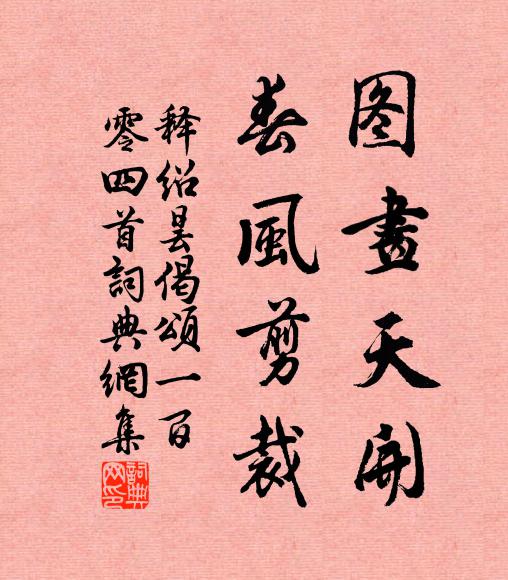 图畫天開
春風剪裁
释绍昙偈頌一百
零四首詞典網集
詞典网印